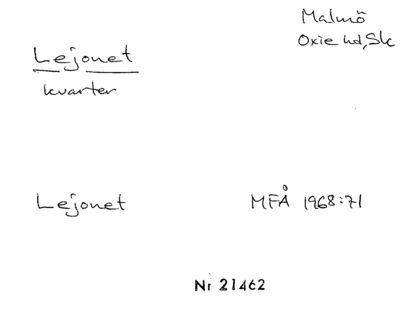 Malmö
Oxie hd, Sk
Lejonet
kvarter
Lejonet MFÅ 1968:71
Nr 21462